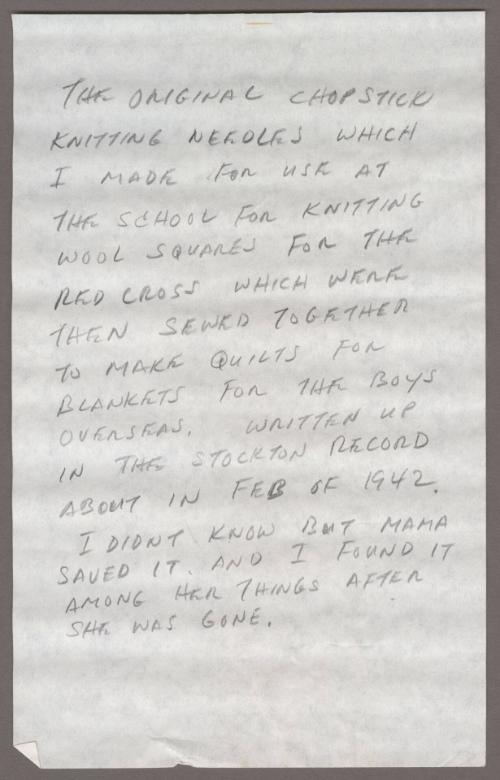 THE ORIGINAL CHOPSTICK
KNITTING NEEDLES WHICH
I MADE FOR USE AT
THE SCHOOL FOR KNITTING
WOOL SQUARES FOR THE
RED CROSS WHICH WERE
THEN SEWED TOGETHER
TO MAKE QUILTS FOR
BLANKETS FOR THE BOYS
OVERSEAS. WRITTEN UP
IN THE STOCKTON RECORD
ABOUT IN FEB OF 1942.
I DIDNT KNOW BUT MAMA
SAVED IT. AND I FOUND IT
AMONG HER THINGS AFTER
SHE WAS GONE.